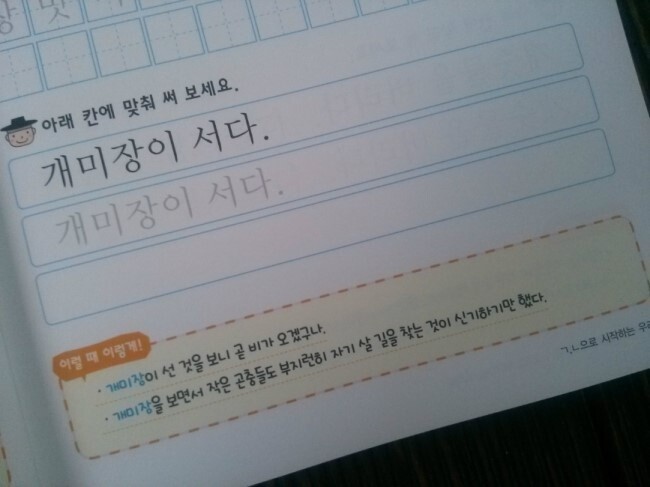 아래 칸에 맞춰 써 보세요.
개미장이 서다.
개미장이 서다.
이럴 때 이렇게!
· 개미장이 선 것을 보니 곧 비가 오겠구나.
· 개미장을 보면서 작은 곤충들도 부지런히 자기 살 길을 찾는 것이 신기하기만 했다.
ㄱ,ㄴ으로 시작하는 우리